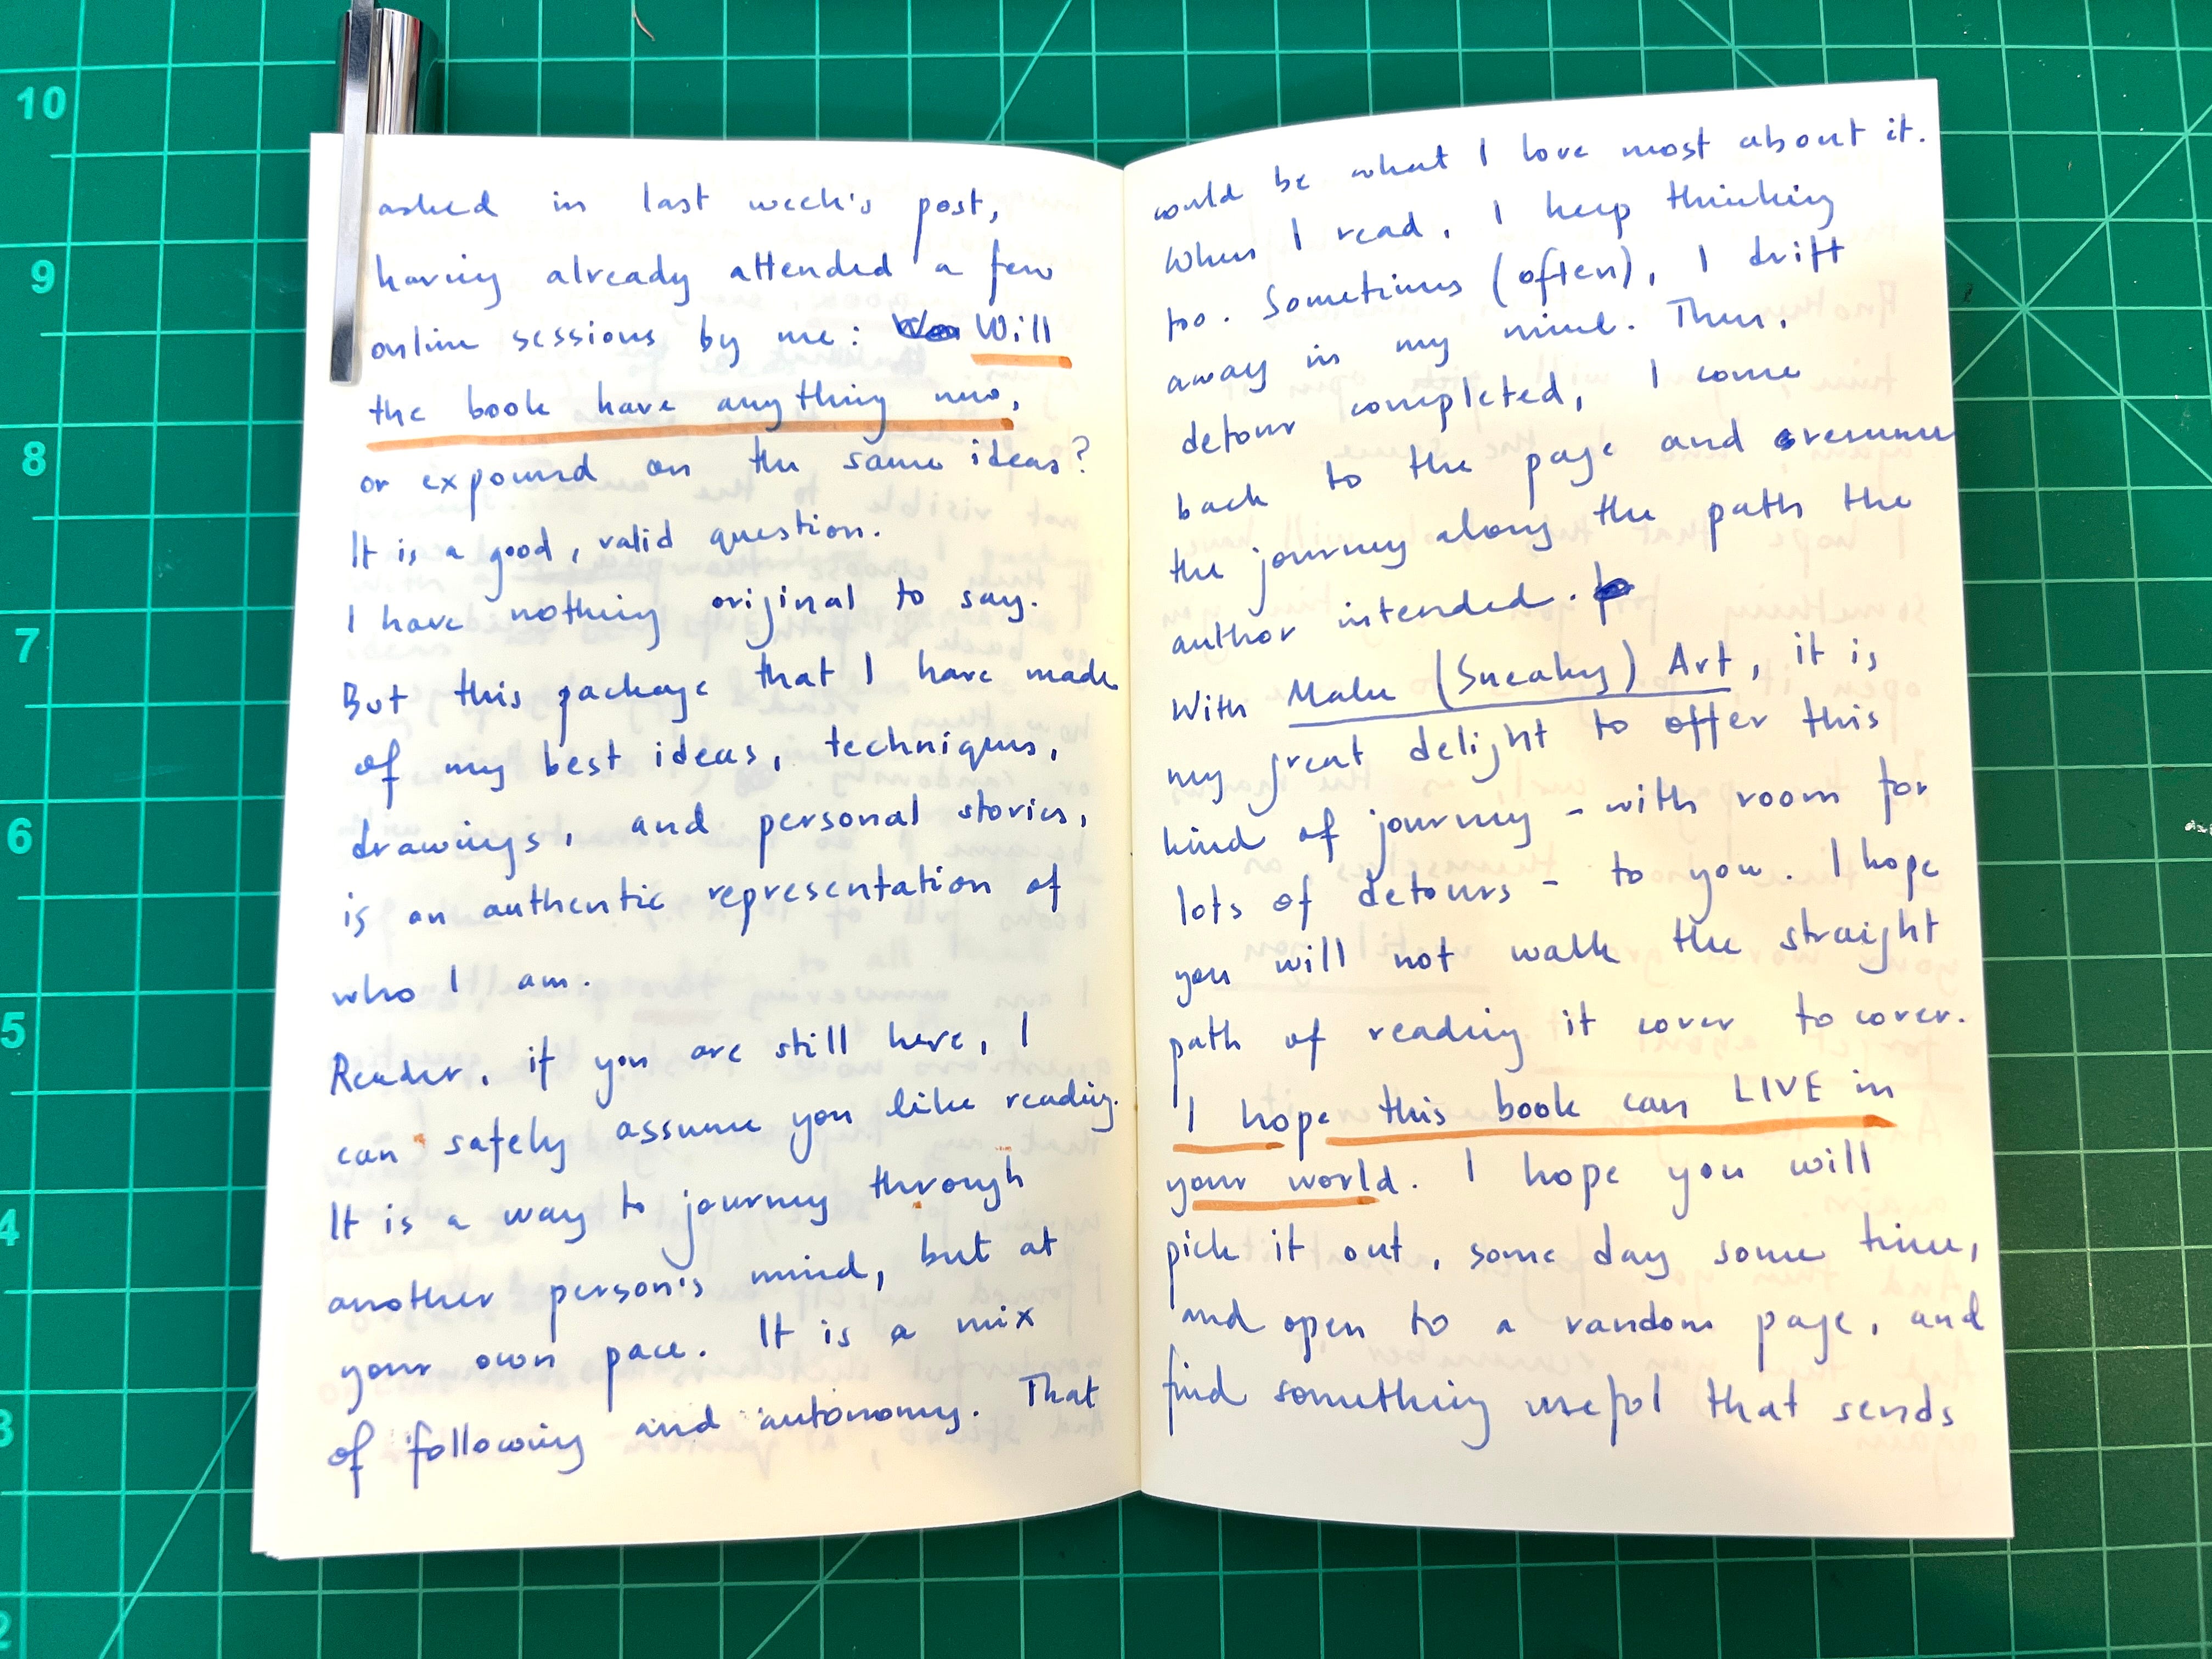 10
9
8
7
6
5
4
3
2
asked in last week's post,
having already attended a few
online sessions by me: Will
the book have anything new,
or expound on the same ideas?
It is a good, valid question.
I have nothing original to say.
But this package that I have made
of my best ideas, techniques,
drawings, and personal stories,
is an authentic representation of
who I am.
Reader, if you are still here, I
can safely assume you like reading.
It is a way to journey through
another person's mind, but at
your own pace. It is a mix
of following and autonomy. That
would be what I love most about it.
When I read, I keep thinking
too. Sometimes (often), I drift
away in my mind. Then,
detour completed, I come
back to the page and resume
the journey along the path the
author intended.
With Make (Sneaky) Art, it is
my great delight to offer this
kind of journey - with room for
lots of detours - to you. I hope
you will not walk the straight
path of reading it cover to cover.
I hope this book can LIVE in
your world. I hope you will
pick it out, some day some time,
and open to a random page, and
find something useful that sends